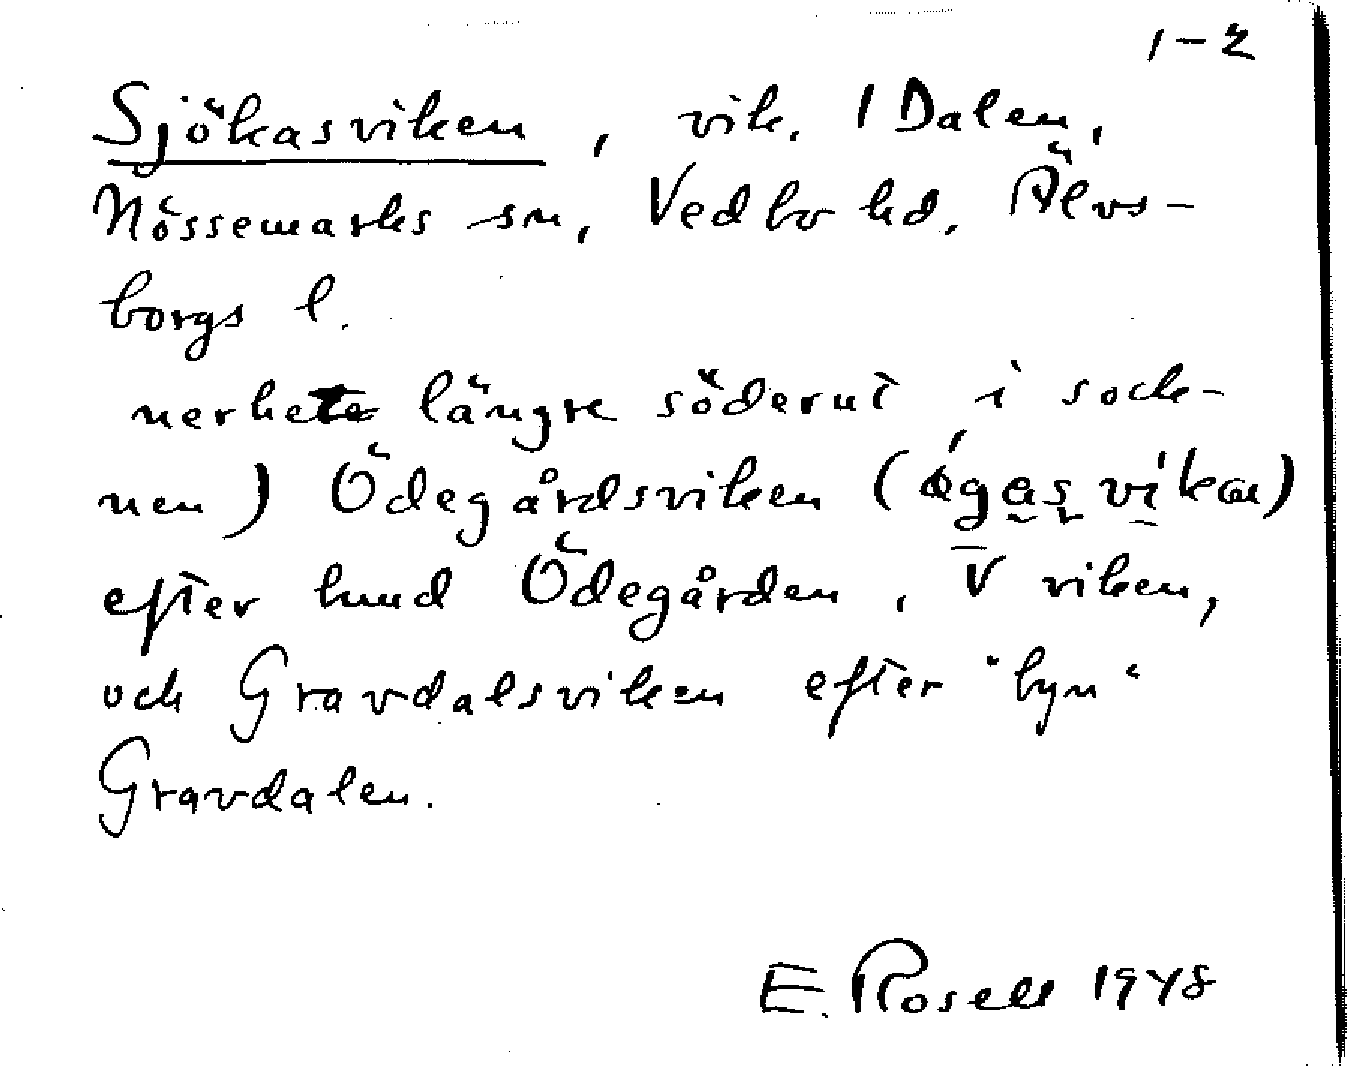 1-2
Sjökasviken, vik. I Dalen,
Nössemarks sn, Vedbo hd. Älvs-
borgs l.
nerhete längre söderut i sock-
nen) Ödegårdsviken (
efter hmd Ödegården, V viken,
och Gravdalsviken efter "byn"
Gravdalen.
E. Rosell 1948